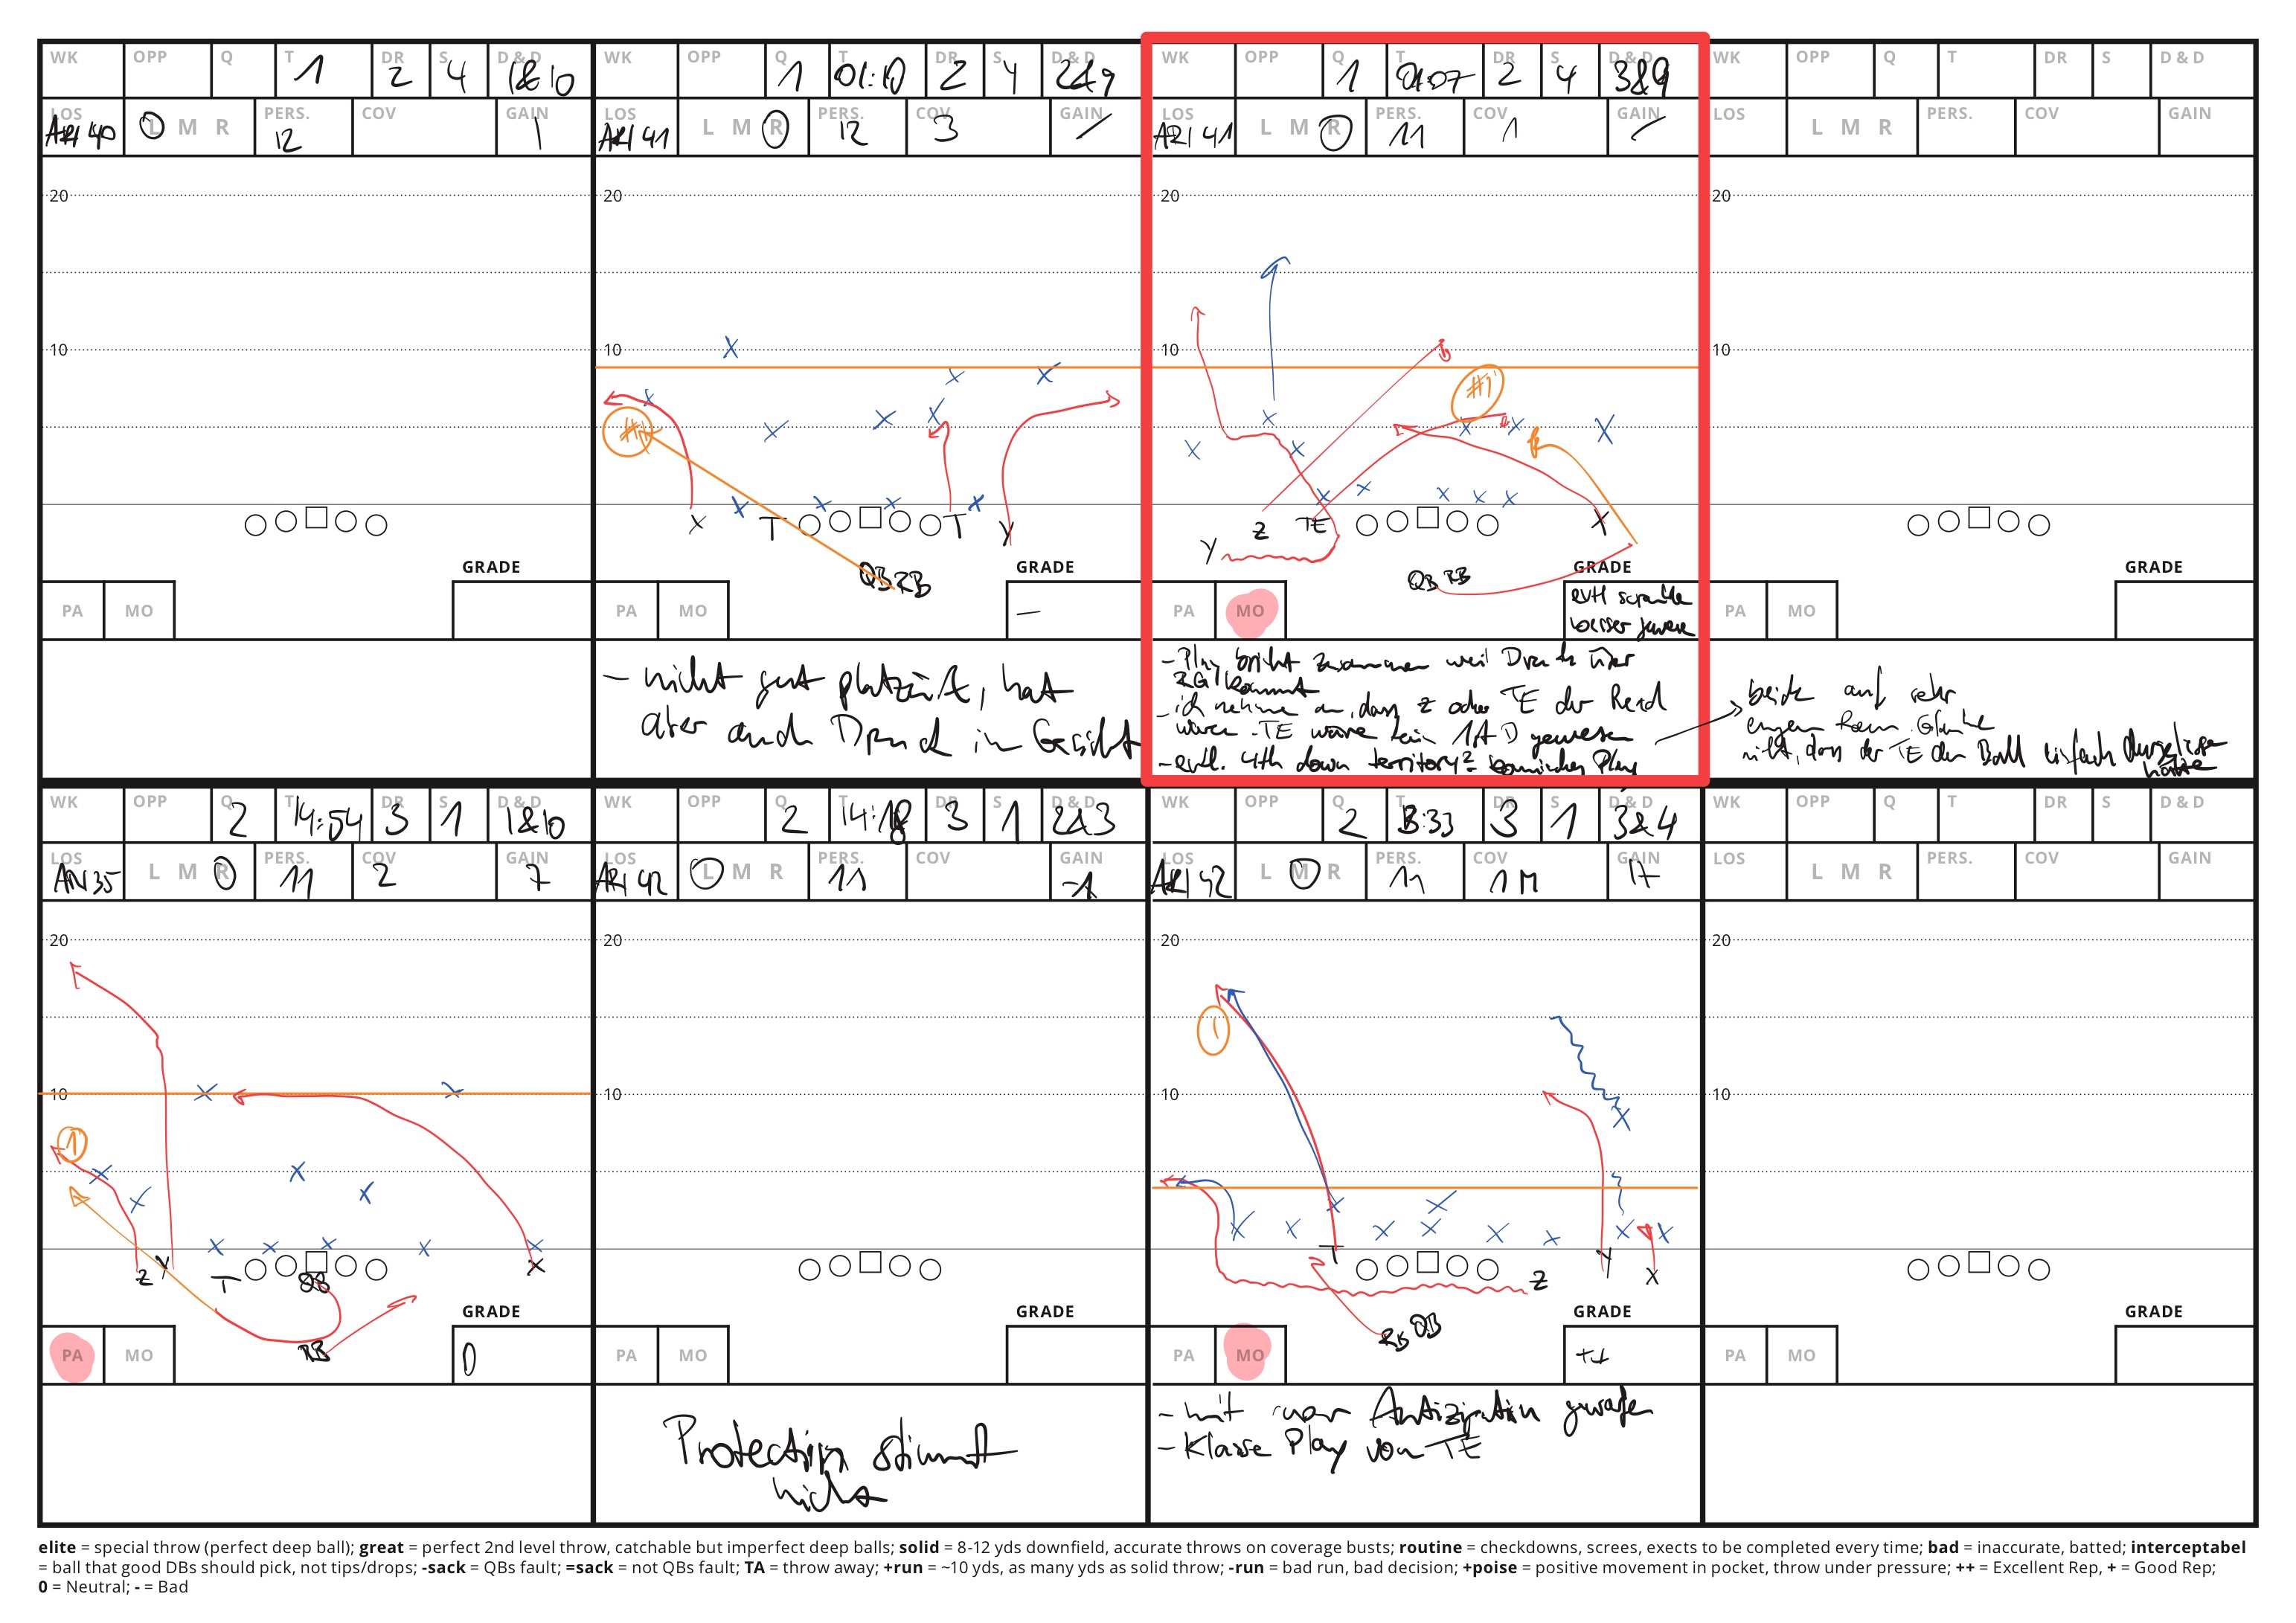 WK OPP Q T 1 DR 2 S 4 D & D 1&10
LOS ARI 40 L M R PERS. 12 COV GAIN 1
20
10
GRADE
PA MO
WK OPP Q 1 T 01:10 DR 2 S 4 D & D 2&9
LOS ARI 41 L M R PERS. 12 COV 3 GAIN /
20
X
X X
X #1 X X X
X X X X
X T T Y
QB RB
GRADE
PA MO –
- nicht gut platziert, hat
aber auch Druck im Gesicht
WK OPP Q 1 T 01:07 DR 2 S 4 D & D 3&9
LOS ARI 41 L M R PERS. 11 COV 1 GAIN /
20
10
#1
X X X X
X X
X X X X X
Z TE X
Y
QB RB
GRADE
PA MO evtl scramble
besser gewesen
- Play bricht zusammen weil Druck über
RG kommt
- ich nehme an, dass Z oder TE der Read
waren. TE wäre kein 1st D gewesen
- evtl. 4th down territory? komisches Play
WK OPP Q T DR S D & D
LOS L M R PERS. COV GAIN
20
10
GRADE
PA MO
beide auf sehr
engem Raum. Glaube
nicht, dass der TE den Ball einfach durgelassen
hätte
WK OPP Q 2 T 14:54 DR 3 S 1 D & D 1&10
LOS L M R PERS. 11 COV 2 GAIN 7
20
10 X X
1
X X X X
X X X X X
Z Y T QB X
RB
GRADE
PA MO 0
WK OPP Q 2 T 14:18 DR 3 S 1 D & D 2&3
LOS ARI 42 L M R PERS. 11 COV GAIN -1
20
10
GRADE
PA MO
Protection stimmt
nicht
WK OPP Q 2 T DR 3 S 1 D & D 3&4
LOS ARI 42 L M R PERS. 11 COV 1 M GAIN 17
20
1
10
X
X X
X X X X X X X X
T Y X
Z
RB QB
GRADE
PA MO ++
- mit Antizipation geworfen
- Klasse Play von TE
WK OPP Q T DR S D & D
LOS L M R PERS. COV GAIN
20
10
GRADE
PA MO
elite = special throw (perfect deep ball); great = perfect 2nd level throw, catchable but imperfect deep balls; solid = 8-12 yds downfield, accurate throws on coverage busts; routine = checkdowns, screes, exects to be completed every time; bad = inaccurate, batted; interceptabel
= ball that good DBs should pick, not tips/drops; -sack = QBs fault; =sack = not QBs fault; TA = throw away; +run = ~10 yds, as many yds as solid throw; -run = bad run, bad decision; +poise = positive movement in pocket, throw under pressure; ++ = Excellent Rep, + = Good Rep;
0 = Neutral; - = Bad